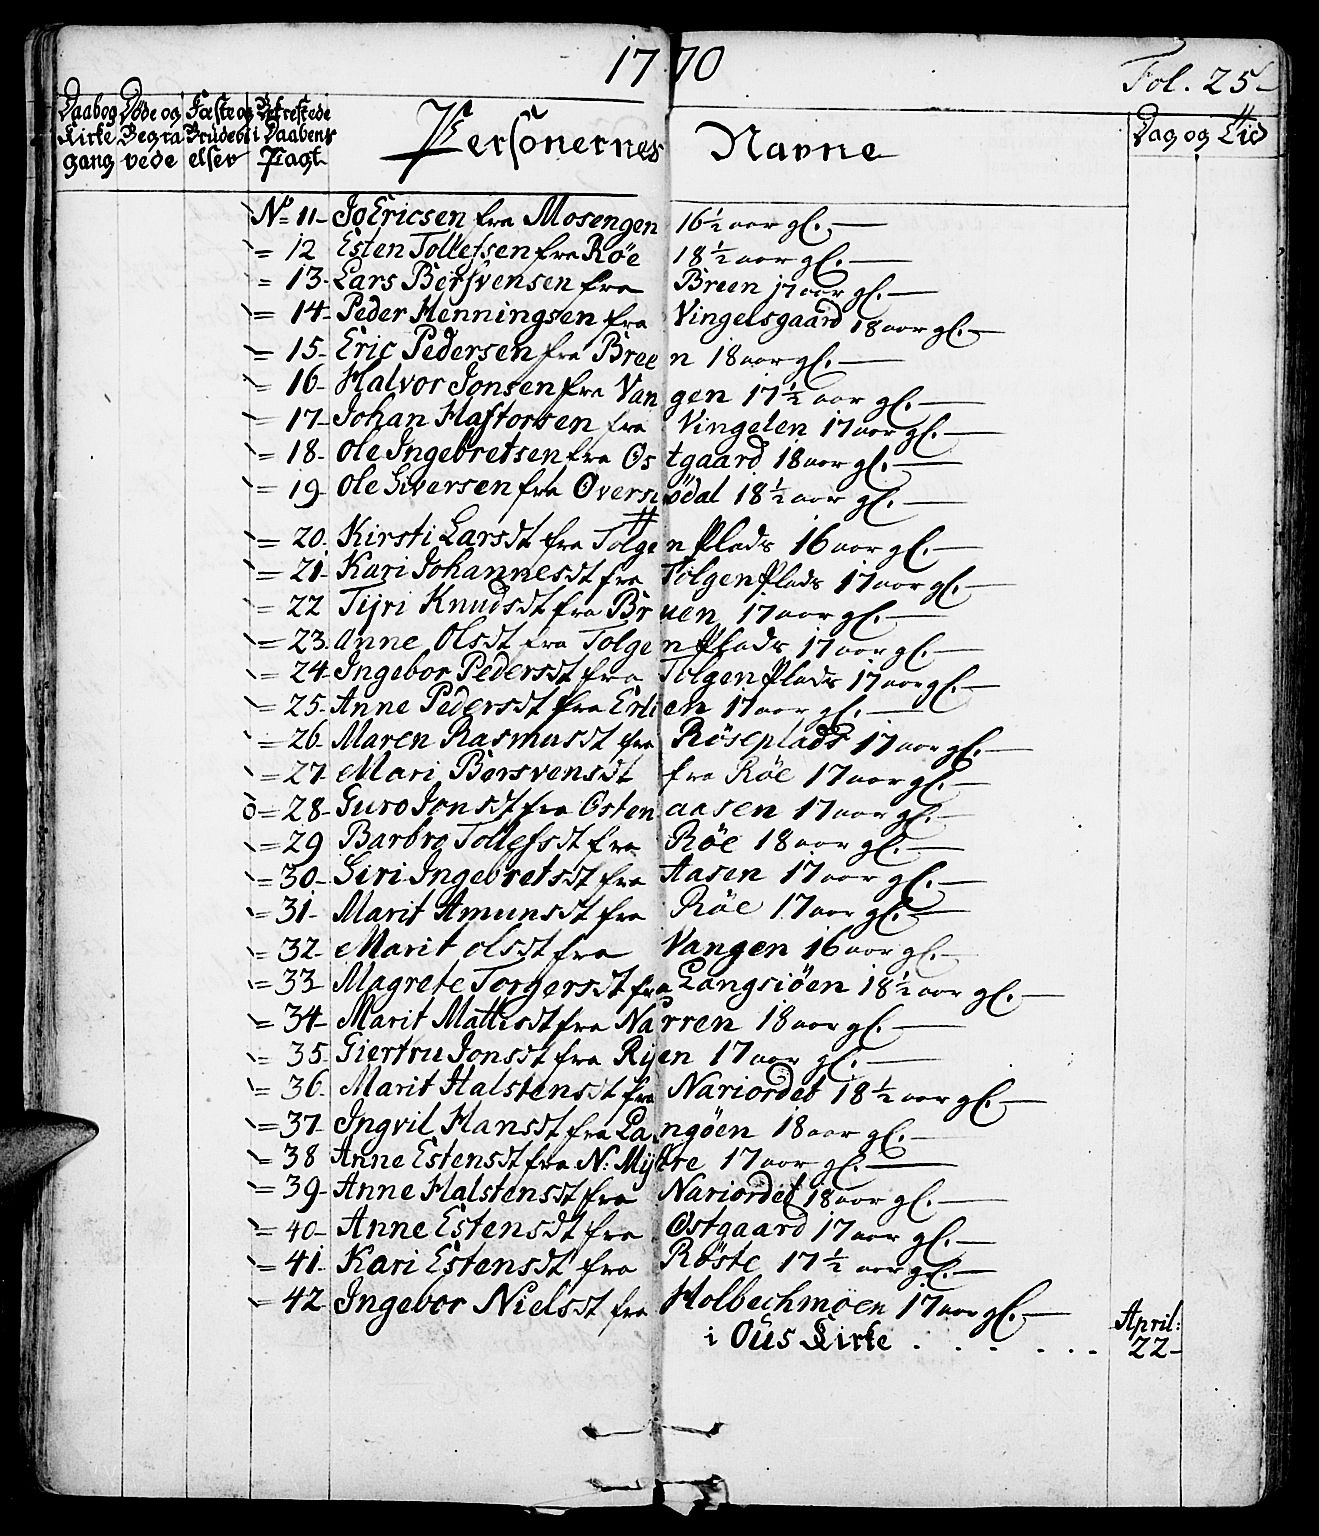 1770
Fol. 25
Daab og Kirke gang
Døde og Begra vede
Fæste og Brudevi elser
Befrestede i Daabens Pagt
Personernes Navne
Dag og Tid
No 11 Jo Ericsen fra Mosengen 16½ aar gl.
= 12 Esten Tollefsen fra Røe 18½ aar gl.
= 13 Lars Bersvensen fra Breen 17 aar gl.
= 14 Peder Henningsen fra Vingelsgaard 18 aar gl.
= 15 Eric Pedersen fra Breen 18 aar gl.
= 16 Halvor Jonsen fra Vangen 17½ aar gl.
= 17 Johan Haftorsen fra Vingelen 17 aar gl.
= 18 Ole Ingebretsen fra Østgaard 18 aar gl.
= 19 Ole Siversen fra Øversiødal 18½ aar gl.
= 20 Kirsti Larsdt fra Tolgen Plads 16 aar gl.
= 21 Kari Johannesdt fra Tolgen Plads 17 aar gl.
= 22 Tyri Knudsdt fra Bruen 17 aar gl.
= 23 Anne Olsdt fra Tolgen Plads 17 aar gl.
= 24 Ingebor Pedersdt fra Tolgen Plads 17 aar gl.
= 25 Anne Pedersdt fra Erlien 17 aar gl.
= 26 Maren Rasmusdt fra Røseplads 17 aar gl.
= 27 Mari Bersvensdt fra Røe 17 aar gl.
= 28 Guro Jonsdt fra Østenaasen 17 aar gl.
= 29 Barbro Tollefsdt fra Røe 18 aar gl.
= 30 Siri Ingebretsdt fra Aasen 17 aar gl.
= 31 Marit Amunsdt fra Røe 17 aar gl.
= 32 Marit Olsdt fra Vangen 16 aar gl.
= 33 Magrete Torgersdt fra Langsiøen 18½ aar gl.
= 34 Marit Mattisdt fra Narren 18 aar gl.
= 35 Giertru Jonsdt fra Ryen 17 aar gl.
= 36 Marit Halstensdt fra Nariordet 18½ aar gl.
= 37 Ingvil Hansdt fra Langøen 18 aar gl.
= 38 Anne Estensdt fra N: Myhre 17 aar gl.
= 39 Anne Halstensdt fra Nariordet 18 aar gl.
= 40 Anne Estensdt fra Østgaard 17 aar gl.
= 41 Kari Estensdt fra Røste 17½ aar gl.
= 42 Ingebor Nielsdt fra Holbechmoen 17 aar gl.
i Ous Kirke . . . . . . April: 22